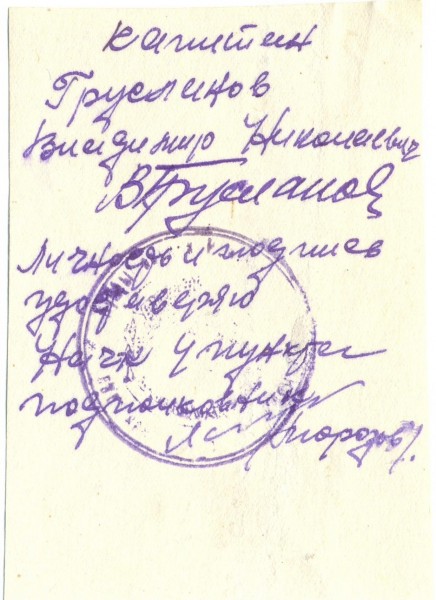 капитан
Трусланов
Владимир Николаевич
ВТрусланов
личность и подпись
удостоверяю
Нач 4 пункта
подполковник